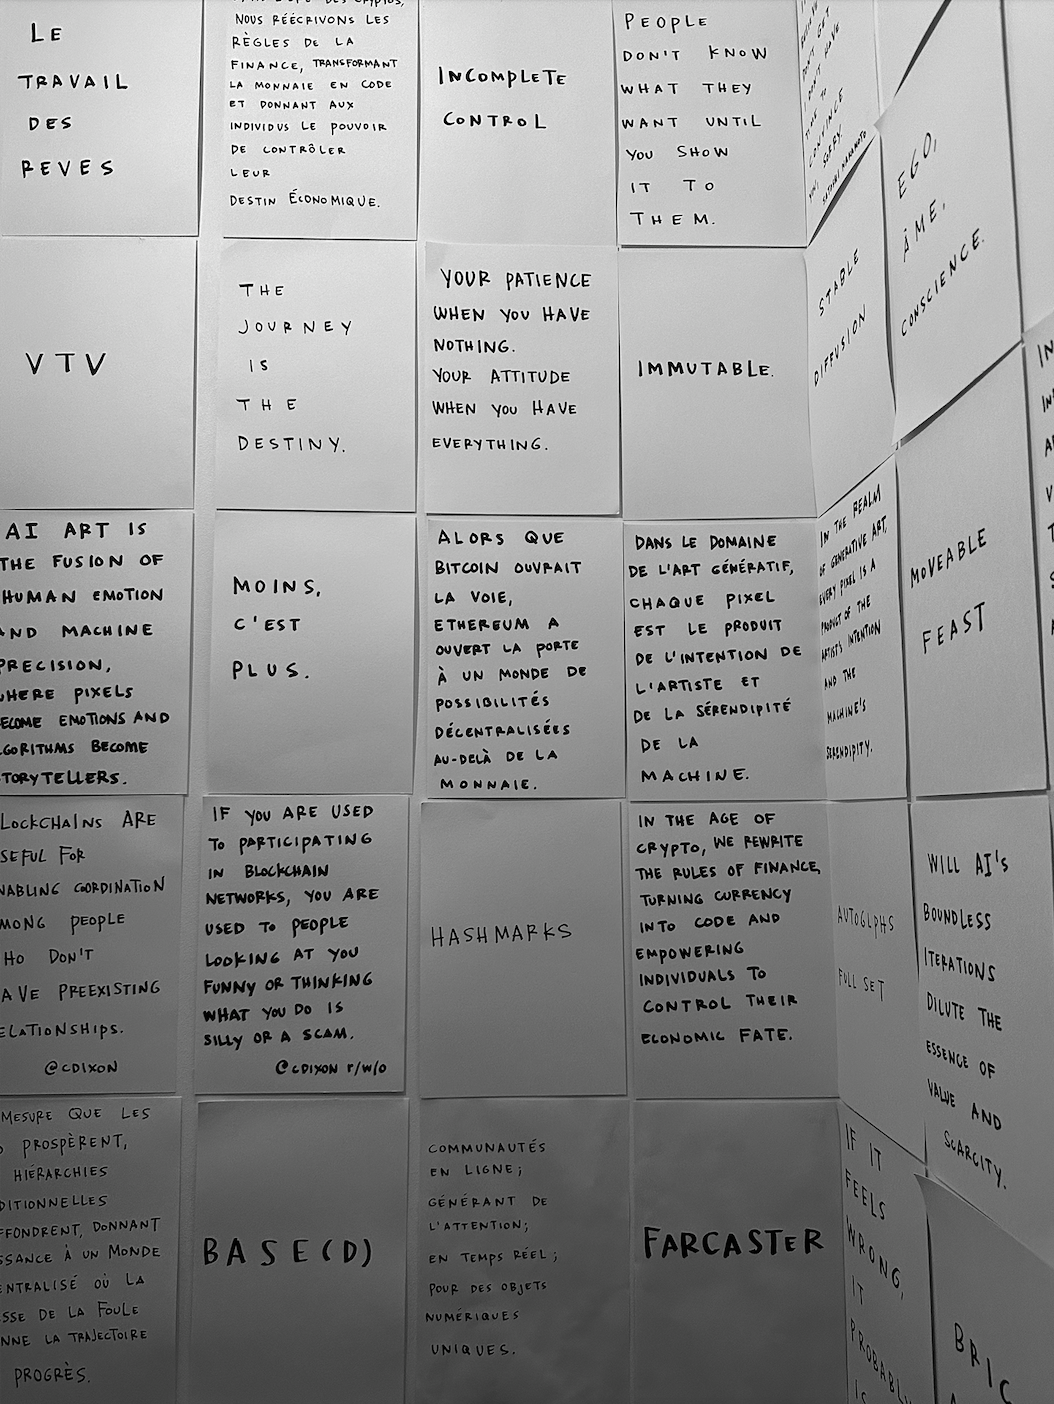 LE
TRAVAIL
DES
REVES
NOUS RÉÉCRIVONS LES
RÈGLES DE LA
FINANCE, TRANSFORMANT
LA MONNAIE EN CODE
ET DONNANT AUX
INDIVIDUS LE POUVOIR
DE CONTRÔLER
LEUR
DESTIN ÉCONOMIQUE.
INCOMPLETE
CONTROL
PEOPLE
DON'T KNOW
WHAT THEY
WANT UNTIL
YOU SHOW
IT TO
THEM.
TIME TO
CONVINCE
YOU, SORRY.
SATOSHI NAKAMOTO
EGO,
ÂME,
CONSCIENCE.
VTV
THE
JOURNEY
IS
THE
DESTINY.
YOUR PATIENCE
WHEN YOU HAVE
NOTHING.
YOUR ATTITUDE
WHEN YOU HAVE
EVERYTHING.
IMMUTABLE.
STABLE
DIFFUSION
AI ART IS
THE FUSION OF
HUMAN EMOTION
AND MACHINE
PRECISION,
WHERE PIXELS
BECOME EMOTIONS AND
ALGORITHMS BECOME
STORYTELLERS.
MOINS,
C'EST
PLUS.
ALORS QUE
BITCOIN OUVRAIT
LA VOIE,
ETHEREUM A
OUVERT LA PORTE
À UN MONDE DE
POSSIBILITÉS
DÉCENTRALISÉES
AU-DELÀ DE LA
MONNAIE.
DANS LE DOMAINE
DE L'ART GÉNÉRATIF,
CHAQUE PIXEL
EST LE PRODUIT
DE L'INTENTION DE
L'ARTISTE ET
DE LA SÉRENDIPITÉ
DE LA
MACHINE.
IN THE REALM
OF GENERATIVE ART,
EVERY PIXEL IS A
PRODUCT OF THE
ARTIST'S INTENTION
AND THE
MACHINE'S
SERENDIPITY.
MOVEABLE
FEAST
BLOCKCHAINS ARE
USEFUL FOR
ENABLING COORDINATION
AMONG PEOPLE
WHO DON'T
HAVE PREEXISTING
RELATIONSHIPS.
@CDIXON
IF YOU ARE USED
TO PARTICIPATING
IN BLOCKCHAIN
NETWORKS, YOU ARE
USED TO PEOPLE
LOOKING AT YOU
FUNNY OR THINKING
WHAT YOU DO IS
SILLY OR A SCAM.
@CDIXON r/w/o
HASHMARKS
IN THE AGE OF
CRYPTO, WE REWRITE
THE RULES OF FINANCE,
TURNING CURRENCY
INTO CODE AND
EMPOWERING
INDIVIDUALS TO
CONTROL THEIR
ECONOMIC FATE.
AUTOGLPHS
FULL SET
WILL AI'S
BOUNDLESS
ITERATIONS
DILUTE THE
ESSENCE OF
VALUE AND
SCARCITY.
MESURE QUE LES
PROSPÈRENT,
HIÉRARCHIES
DITIONNELLES
FFONDRENT, DONNANT
SSANCE À UN MONDE
ENTRALISÉ OÙ LA
SSE DE LA FOULE
NNE LA TRAJECTOIRE
PROGRÈS.
BASE(D)
COMMUNAUTÉS
EN LIGNE;
GÉNÉRANT DE
L'ATTENTION;
EN TEMPS RÉEL;
POUR DES OBJETS
NUMÉRIQUES
UNIQUES.
FARCASTER
IF IT
FEELS
WRONG,
IT
PROBABLY
IS
BRIC